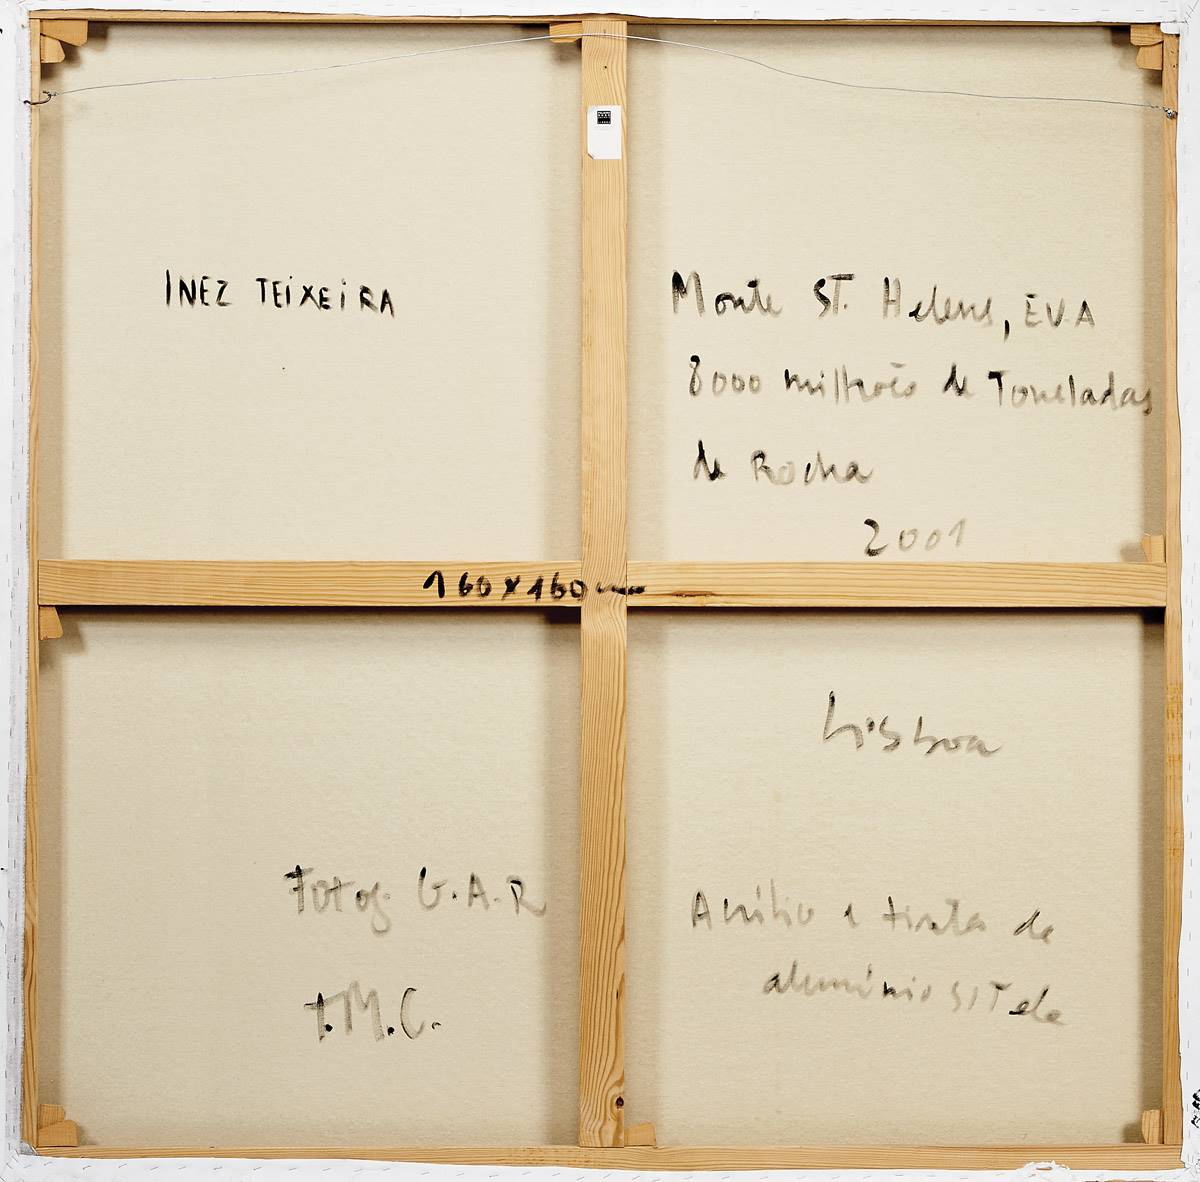 INEZ TEIXEIRA
Monte ST. Helens, EVA
8000 milhões de Toneladas
de Rocha
2001
160x160cm
Lisboa
Fotog. G.A.R
T.M.C.
Acrílico e tinta de
alumínio S/Tela